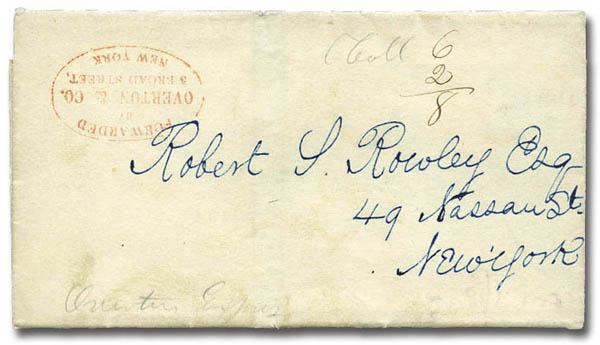 FORWARDED
BY
OVERTON & CO.
3 BROAD STREET.
NEW YORK
Coll 6
2
8
Robert S. Rowley Esq
49 Nassau St.
New York
Overton Express